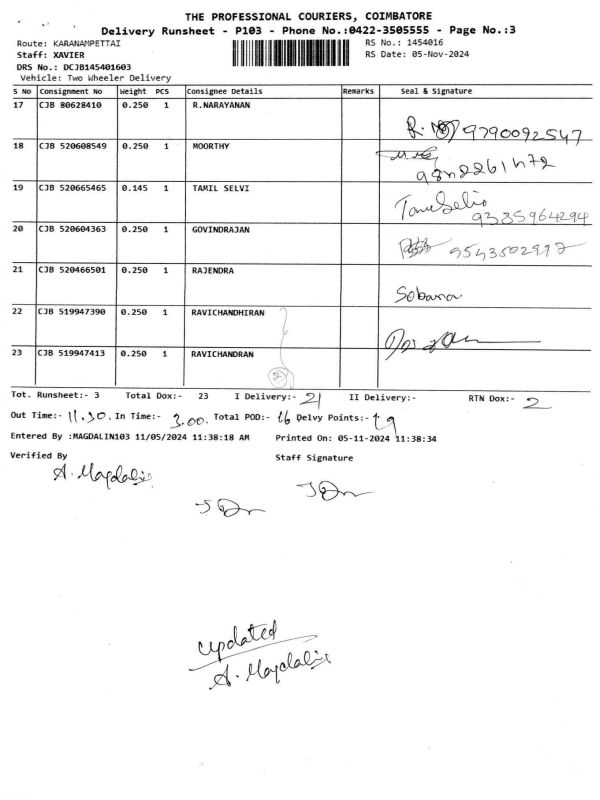 THE PROFESSIONAL COURIERS, COIMBATORE
Delivery Runsheet - P103 - Phone No.:0422-3505555 - Page No.:3
Route: KARANAMPETTAI RS No.: 1454016
Staff: XAVIER RS Date: 05-Nov-2024
DRS No.: DCJB145401603
Vehicle: Two Wheeler Delivery
S No Consignment No Weight PCS Consignee Details Remarks Seal & Signature
17 CJB 80628410 0.250 1 R.NARAYANAN
R. 9790092547
18 CJB 520608549 0.250 1 MOORTHY
19 CJB 520665465 0.145 1 TAMIL SELVI
9385964294
20 CJB 520604363 0.250 1 GOVINDRAJAN
9543502997
21 CJB 520466501 0.250 1 RAJENDRA
Sobana
22 CJB 519947390 0.250 1 RAVICHANDHIRAN
23 CJB 519947413 0.250 1 RAVICHANDRAN
21
Tot. Runsheet:- 3 Total Dox:- 23 I Delivery:- 21 II Delivery:- RTN Dox:- 2
Out Time:- 11.30. In Time:- 3.00. Total POD:- 16 Delvy Points:- 19
Entered By :MAGDALIN103 11/05/2024 11:38:18 AM Printed On: 05-11-2024 11:38:34
Verified By Staff Signature
A. Magdalin
updated
A. Magdalin